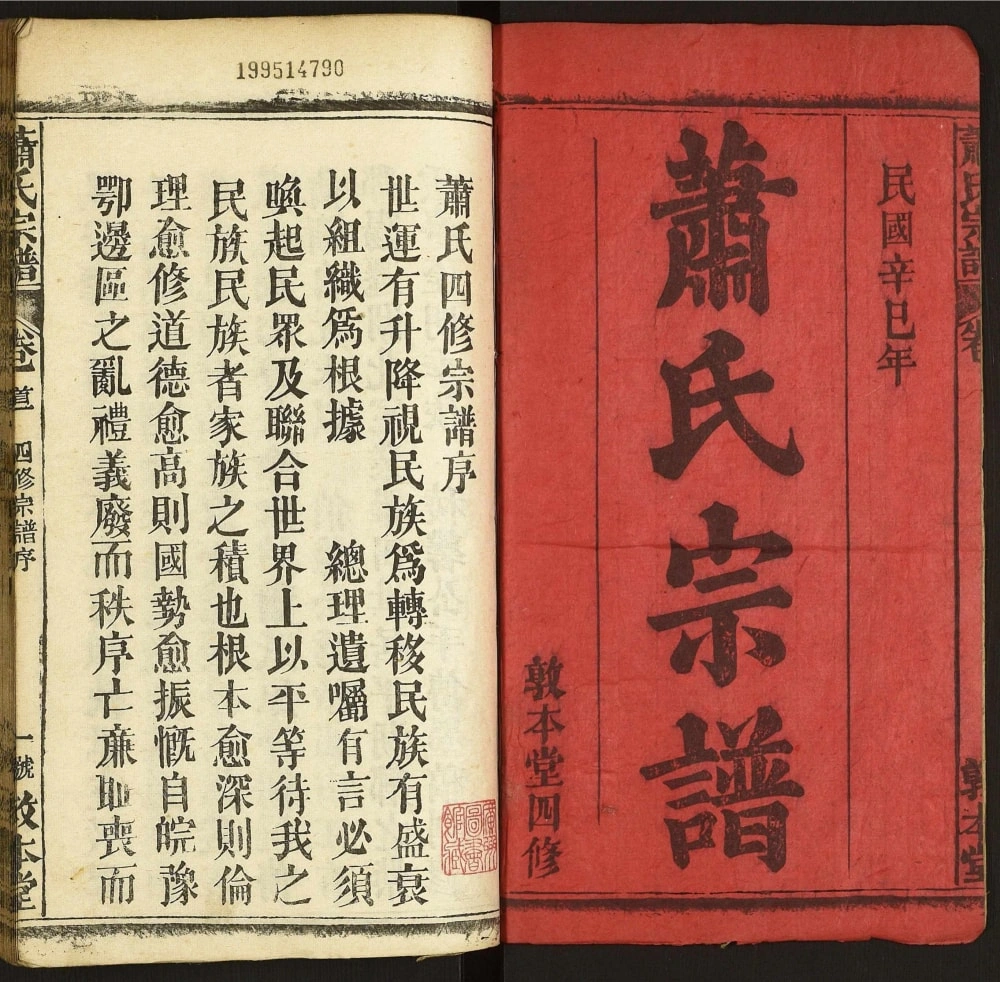 民國辛巳年
蕭氏宗譜
敦本堂四修
蕭氏宗譜
敦本堂
199514790
蕭氏四修宗譜序
世運有升降視民族爲轉移民族有盛衰
以組織爲根據 總理遺囑有言必須
喚起民眾及聯合世界上以平等待我之
民族民族者家族之積也根本愈深則倫
理愈修道德愈高則國勢愈振慨自皖豫
鄂邊區之亂禮義廢而秩序亡亷恥喪而
蕭氏宗譜 卷 首 四修宗譜序 一號 敦本堂